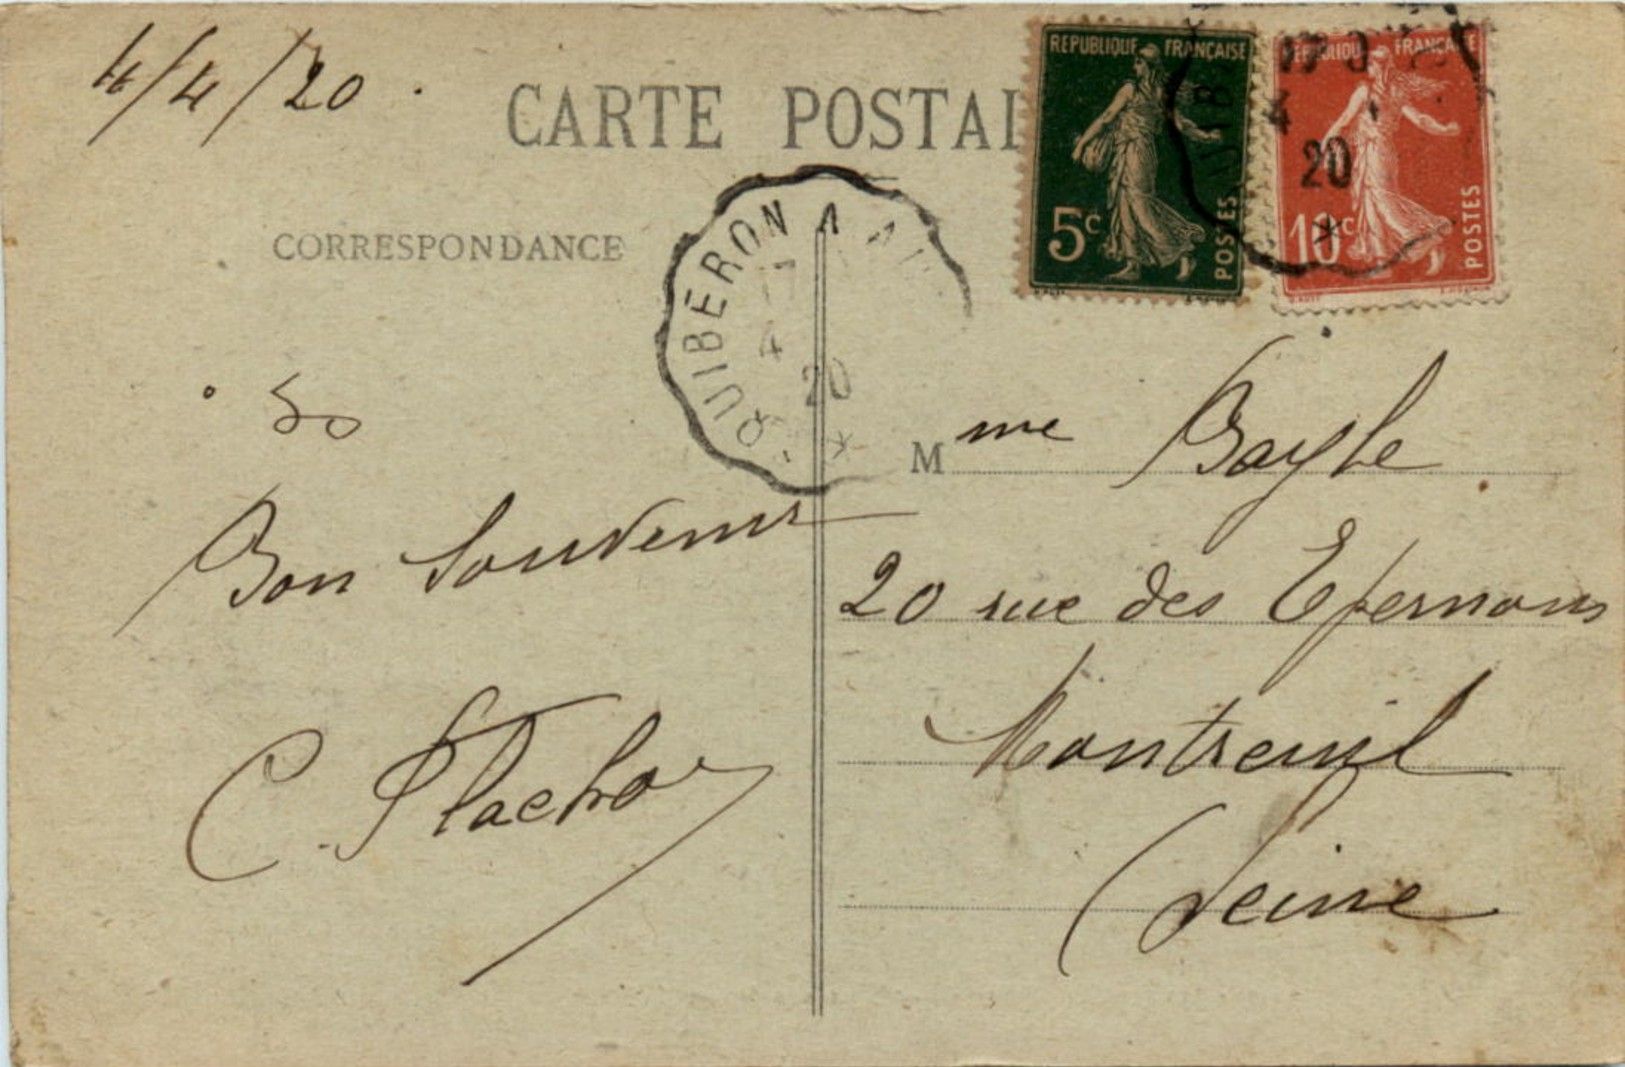 4/4/20.
CARTE POSTAL
REPUBLIQUE FRANÇAISE
5c
POSTES
REPUBLIQUE FRANÇAISE
10c
POSTES
4
20
CORRESPONDANCE
QUIBERON A
17
4
20
Mme Bayle
20 rue des Epernons
Montreuil
(Seine
Bon Souvenir
C.